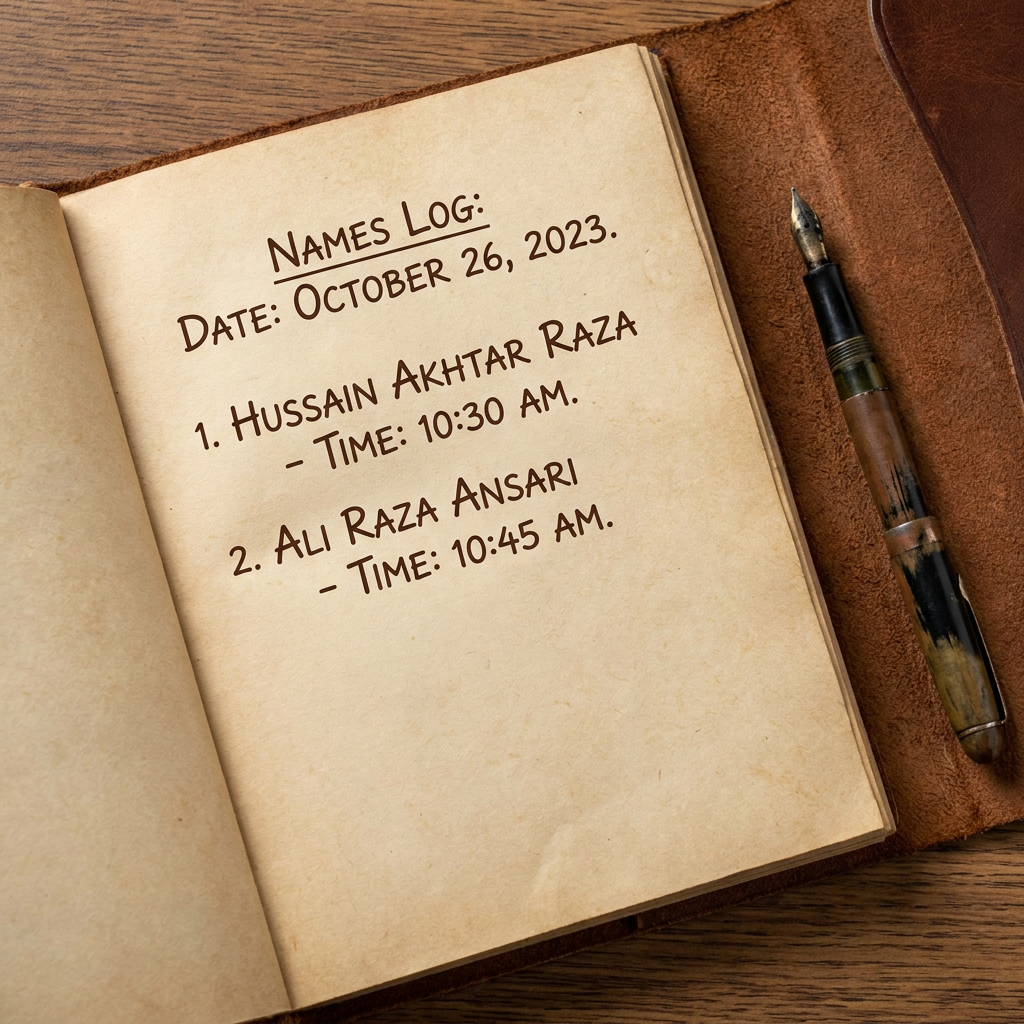 NAMES LOG:
DATE: OCTOBER 26, 2023.
1. HUSSAIN AKHTAR RAZA
- TIME: 10:30 AM.
2. ALI RAZA ANSARI
- TIME: 10:45 AM.